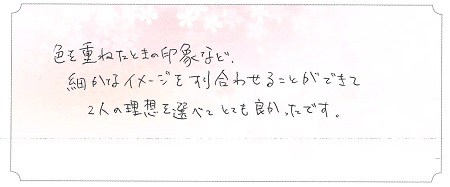 色を重ねたときの印象など、
細かなイメージをすり合わせることができて
2人の理想を選べてとても良かったです。